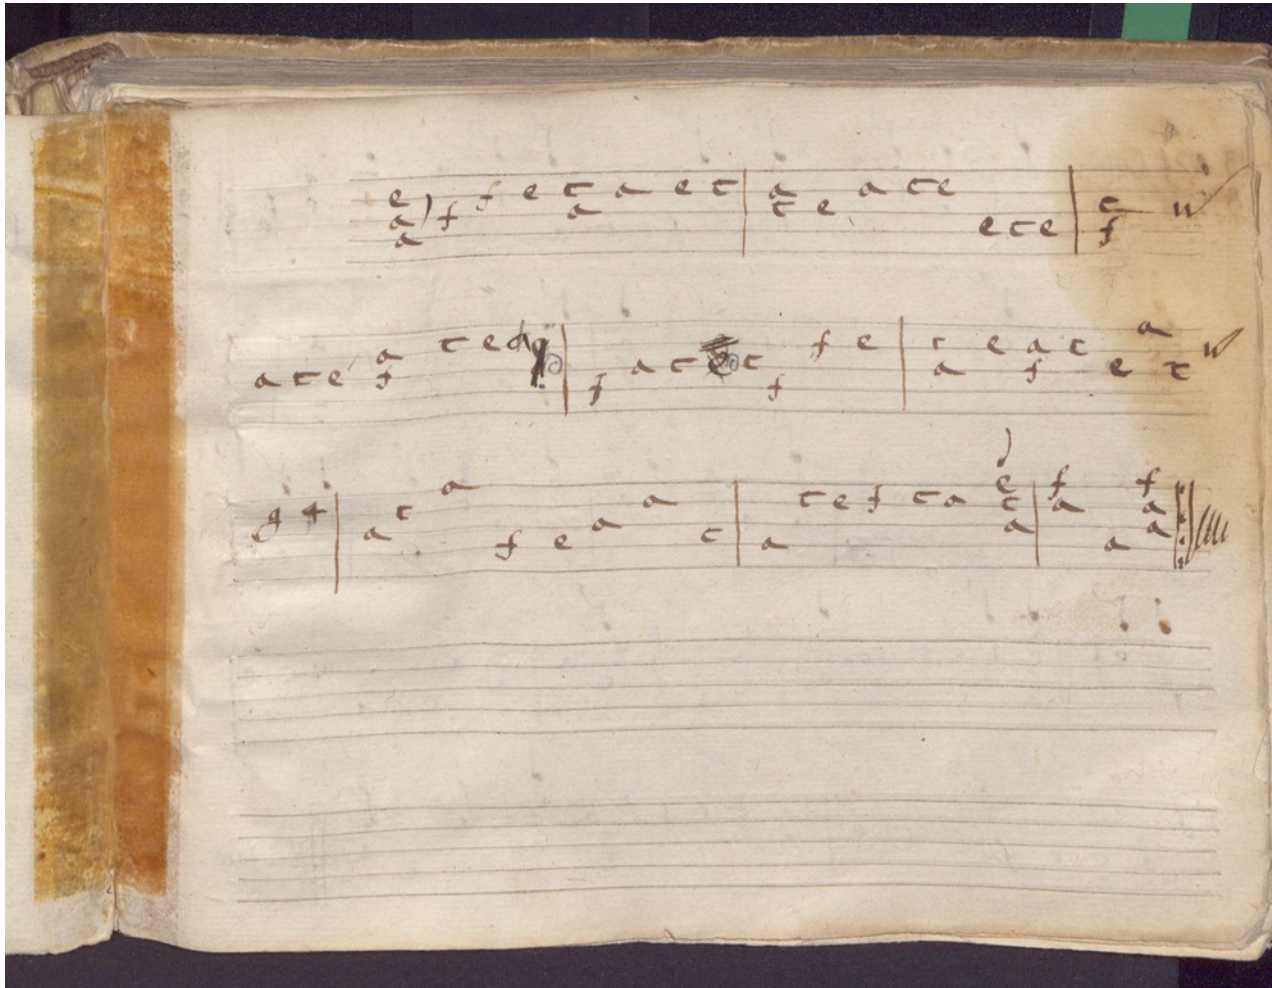 e a a f f e c a a e c a c e a c e e c e c f
a c e a f c e d f a c e c f f e c a e a f c e a c
g f a c a f e a a c a c e f c a e c a f a a f a a